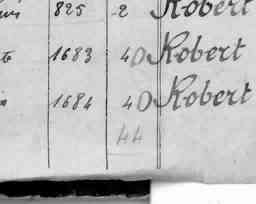 825 2 Robert
1683 40 Robert
1684 40 Robert
44